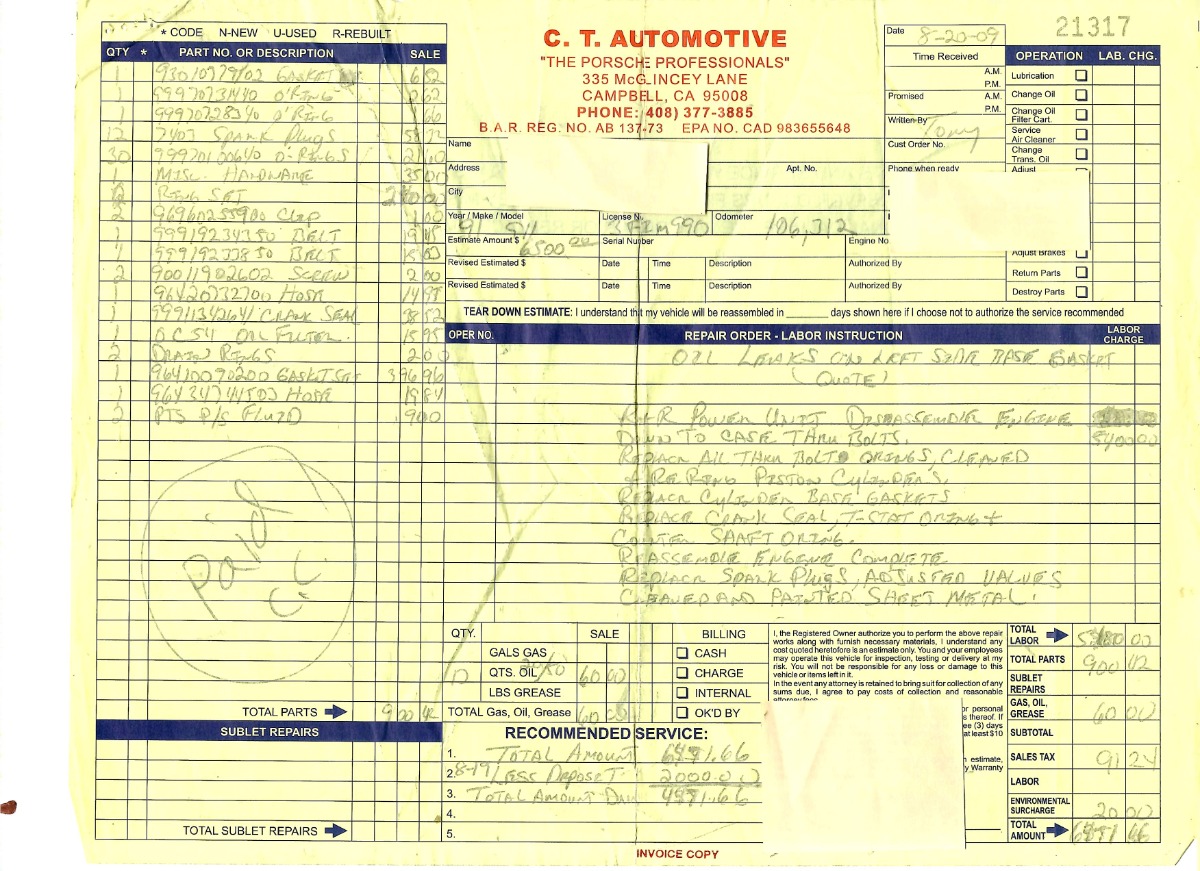 * CODE N-NEW U-USED R-REBUILT
QTY * PART NO. OR DESCRIPTION SALE
1 GASKET 6 82
1 99970731440 O'RING 62
1 99970728340 O'RING 66
12 7403 SPARK PLUGS 58 72
30 99970100640 O-RINGS 21 60
1 MISC. HARDWARE 35 00
RING SET
2 96960255900 CLIP 1 00
1 99919234350 BELT 19 45
1 99919233850 BELT
2 90011902602 SCREW 2 00
1 96420732700 HOSE 14 98
1 99911342641 CRANK SEAL 38 52
1 OIL FILTER 15 95
2 DRAIN RINGS 2 00
1 96410090200 GASKET SET 396 96
1 96434744503 HOSE 19 84
2 PTS P/S FLUID 9 00
Paid
C.C.
TOTAL PARTS 900 42
SUBLET REPAIRS
TOTAL SUBLET REPAIRS
C. T. AUTOMOTIVE
"THE PORSCHE PROFESSIONALS"
335 McGLINCEY LANE
CAMPBELL, CA 95008
PHONE: (408) 377-3885
B.A.R. REG. NO. AB 137-73 EPA NO. CAD 983655648
Date 8-20-09
21317
Time Received
A.M.
P.M.
Promised A.M.
P.M.
Written By Tony
Cust Order No.
Phone when ready
Name
Address Apt. No.
City
Year / Make / Model License N. Odometer
91 911 106,312
Estimate Amount $ 6500 00 Serial Number Engine No
Revised Estimated $ Date Time Description Authorized By
Revised Estimated $ Date Time Description Authorized By
OPERATION LAB. CHG.
Lubrication
Change Oil
Change Oil
Filter Cart.
Service
Air Cleaner
Change
Trans. Oil
Adjust
Adjust Brakes
Return Parts
Destroy Parts
TEAR DOWN ESTIMATE: I understand that my vehicle will be reassembled in ______ days shown here if I choose not to authorize the service recommended
OPER NO. REPAIR ORDER - LABOR INSTRUCTION LABOR CHARGE
OIL LEAKS ON LEFT SIDE BASE GASKET
(QUOTE)
R+R POWER UNIT DISASSEMBLE ENGINE
DOWN TO CASE THRU BOLTS. 5400 00
REPLACE ALL THRU BOLT ORINGS, CLEANED
+ RE RING PISTON CYLINDERS.
REPLACE CYLINDER BASE GASKETS
REPLACE CRANK SEAL, T-STAT ORING +
COUTER SHAFT ORING.
REASSEMBLE ENGINE COMPLETE
REPLACE SPARK PLUGS, ADJUSTED VALVES
CLEANED AND PAINTED SHEET METAL.
QTY. SALE
GALS GAS
12 QTS. OIL 20/50 60 00
LBS GREASE
TOTAL Gas, Oil, Grease 60 00
BILLING
CASH
CHARGE
INTERNAL
OK'D BY
I, the Registered Owner authorize you to perform the above repair
works along with furnish necessary materials, I understand any
cost quoted heretofore is an estimate only. You and your employees
may operate this vehicle for inspection, testing or delivery at my
risk. You will not be responsible for any loss or damage to this
vehicle or items left in it.
In the event any attorney is retained to bring suit for collection of any
sums due, I agree to pay costs of collection and reasonable
attorney fees
or personal
s thereof. If
ee (3) days
at least $10
estimate,
y Warranty
TOTAL LABOR
TOTAL PARTS 900 42
SUBLET REPAIRS
GAS, OIL, GREASE 60 00
SUBTOTAL
SALES TAX 91 24
LABOR
ENVIRONMENTAL SURCHARGE 20 00
TOTAL AMOUNT
RECOMMENDED SERVICE:
1. TOTAL AMOUNT
2. 8-19 LESS DEPOSIT 2000.00
3. TOTAL AMOUNT DUE
4.
5.
INVOICE COPY